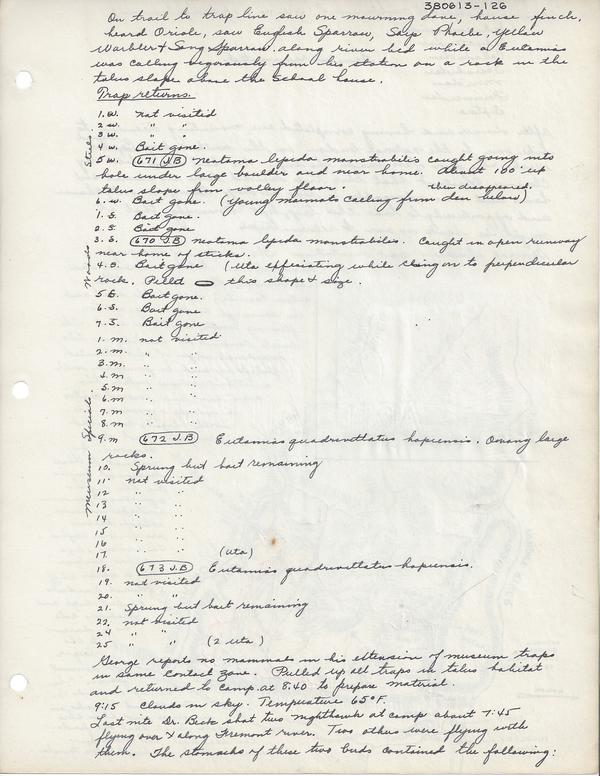 3B0613-126
On trail to trap line saw one mourning dove, house finch,
heard Oriole, saw English Sparrow, Say's Phoebe, Yellow
Warbler & Song Sparrow along river bed while a Eutamias
was calling vigorously from his station on a rock in the
talus slope above the School house.
Trap returns.
Steels.
1. W. not visited
2 W. " "
3 W. " "
4 W. Bait gone.
5 W. (671 J.B) Neotoma lepida monstrabilis caught going into
hole under large boulder and near home. About 100' up
talus slope from valley floor. then disappeared.
6. W. Bait gone. (Young marmots calling from den below)
1. S. Bait gone.
2. S. Bait gone
3. S. (670 J.B) Neotoma lepida monstrabilis. Caught in open runway
near home of sticks.
4. S. Bait gone (Uta officiating while clinging on to perpendicular
rock. Pelld this shape & size.
5 S. Bait gone.
6. S. Bait gone
7. S. Bait gone
Museum Specials.
1. m. not visited
2. m. " "
3. m. " "
4. m " "
5. m " "
6. m " "
7. m " "
8. m " "
9. m (672 J.B) Eutamias quadrivittatus hopiensis. Among large
rocks.
10. Sprung but bait remaining
11. not visited
12 " "
13 " "
14 " "
15 " "
16 " "
17. " " (Uta)
18. (673 J.B) Eutamias quadrivittatus hopiensis.
19. not visited
20. " "
21. Sprung but bait remaining
22. not visited
24 " "
25 " " (2 uta)
George reports no mammals in his extension of museum traps
in same contact zone. Pulled up all traps in talus habitat
and returned to camp at 8:40 to prepare material.
9:15 Clouds in sky. Temperature 65°F.
Last nite Dr. Beck shot two nighthawk at camp about 7:45
flying over & along Fremont river. Two others were flying with
them. The stomachs of these two birds contained the following: